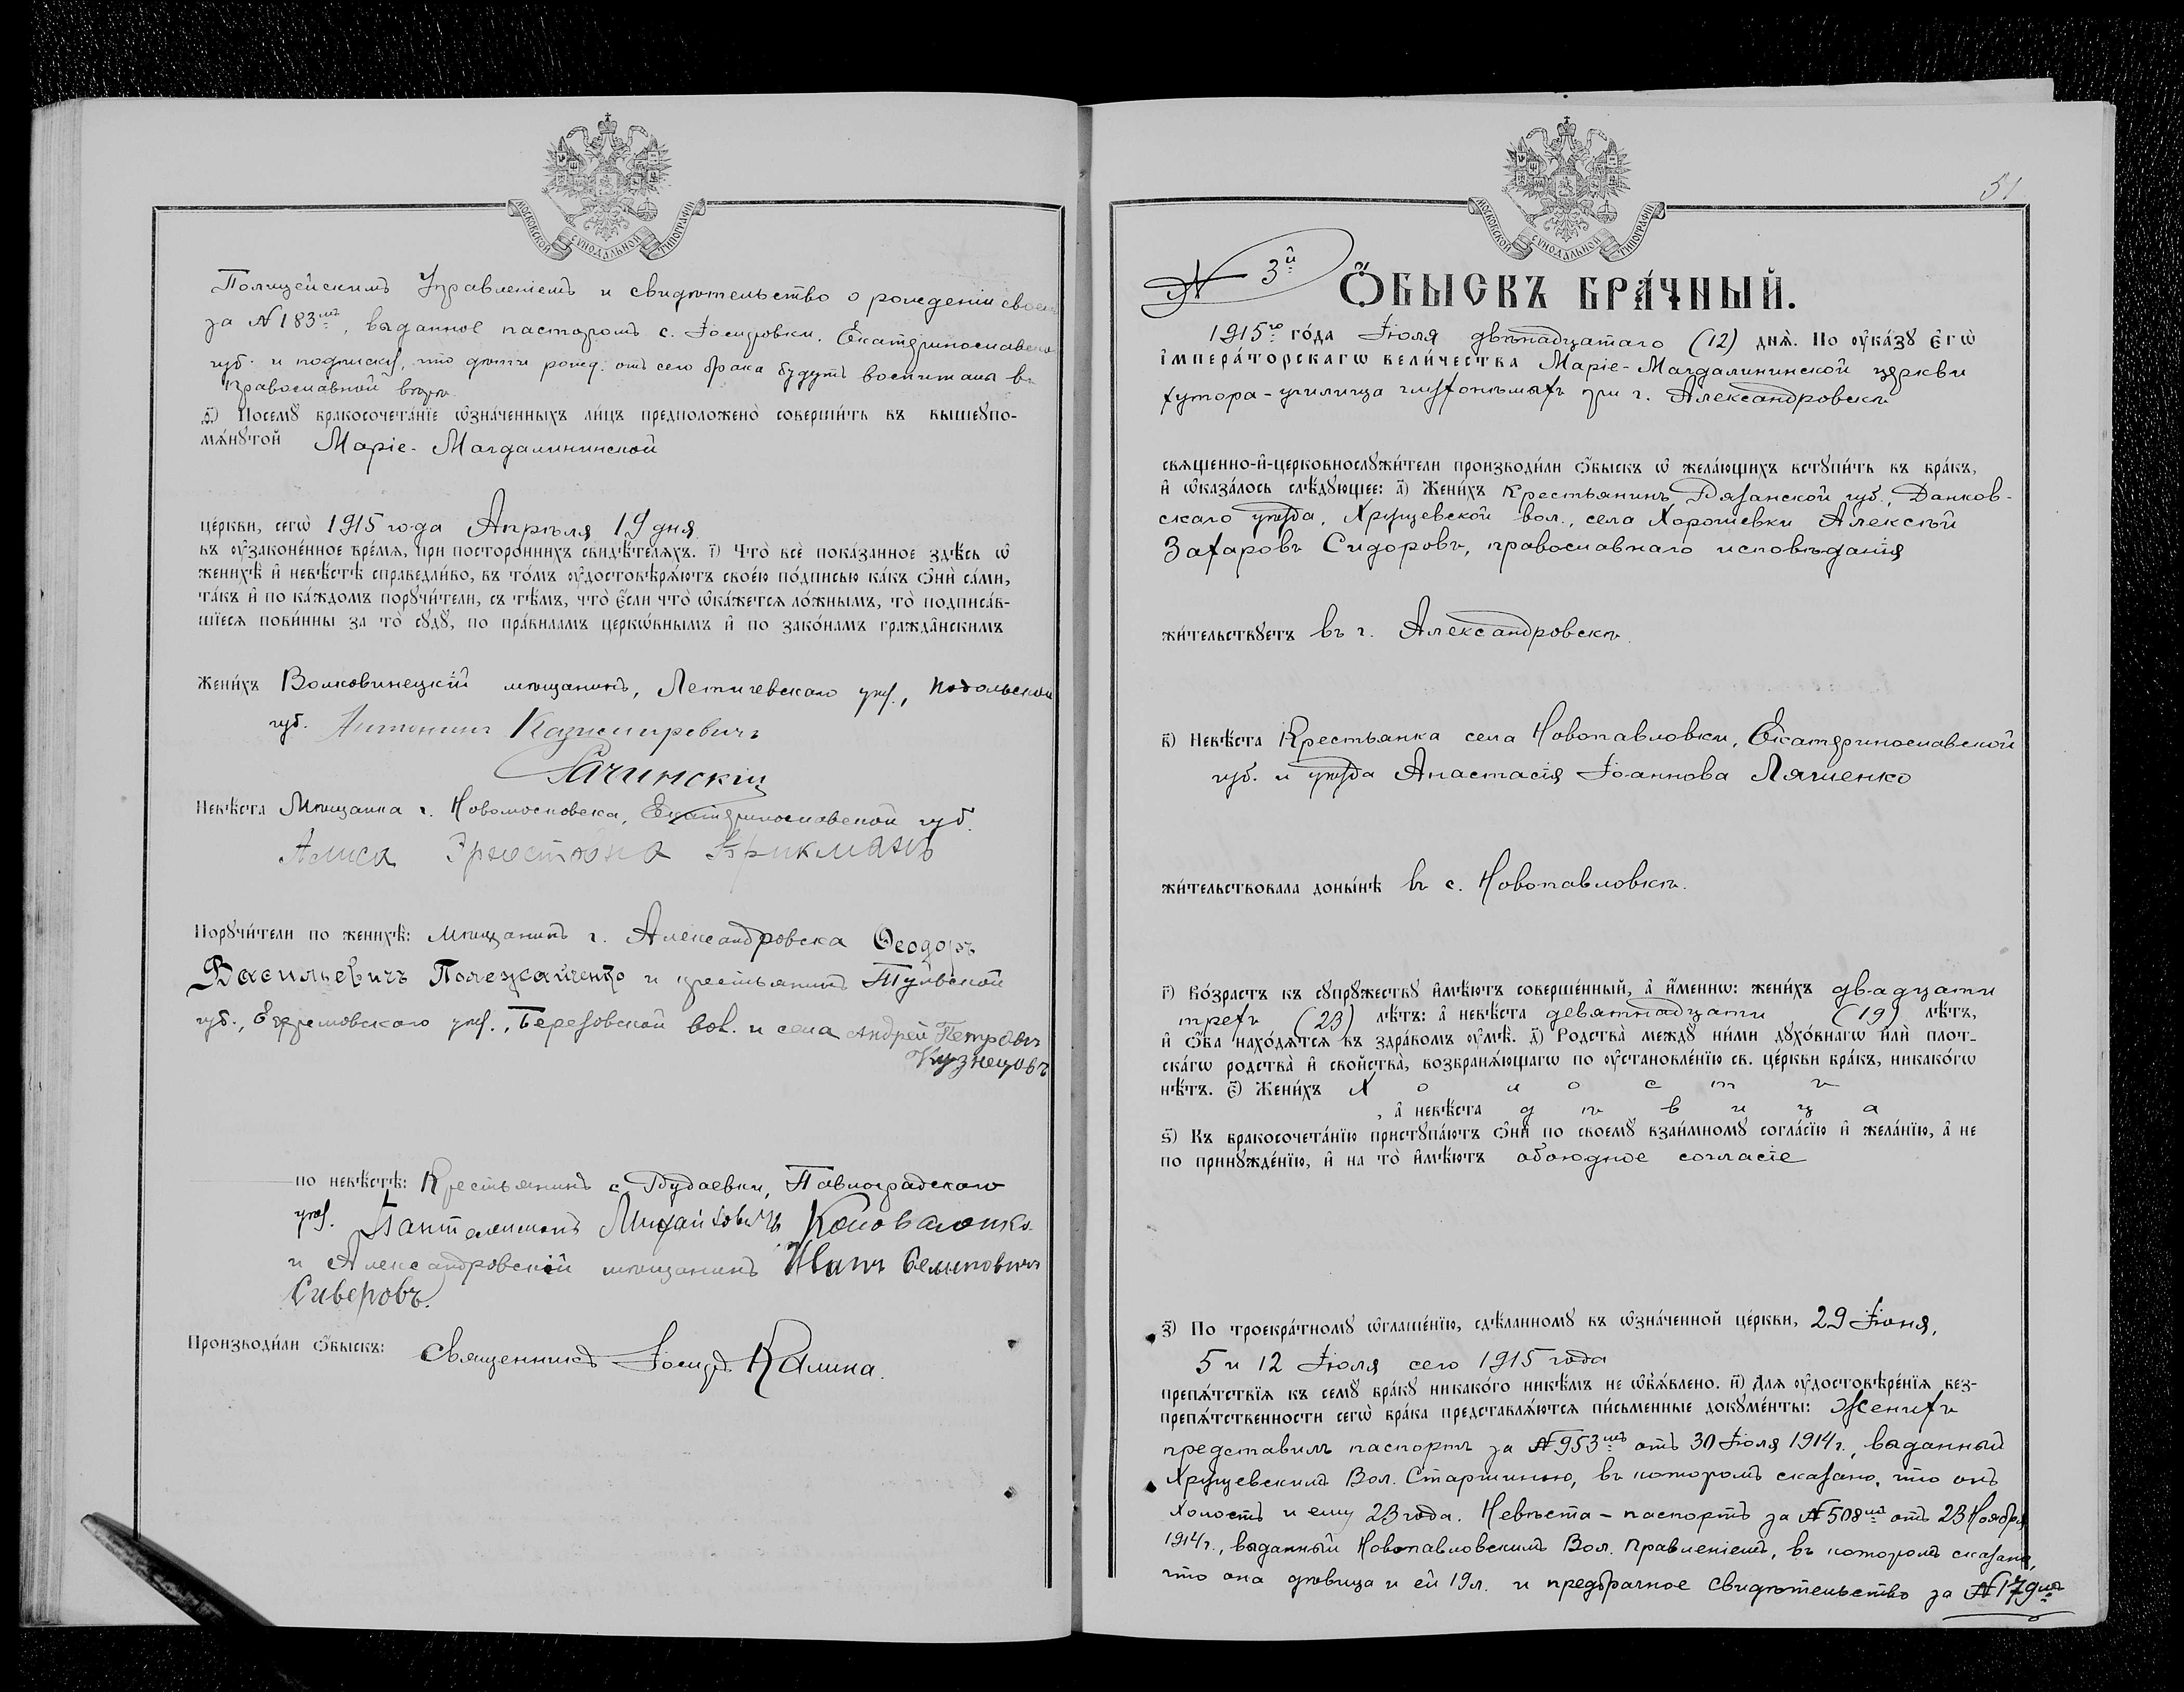 МОСКОВСКОЙ СѴНОДАЛЬНОЙ ТИПОГРАФІИ
Полицейскимъ Управленіемъ и свидѣтельство о рожденіи своемъ
за №183мъ, выданное пасторомъ с. Іосифовки, Екатеринославской
губ. и подписку, что дѣти рожд. отъ сего брака будутъ воспитаны въ
православной вѣрѣ.
ѳ҃) Посемꙋ̀ бракосочета́нїе ѡ҆зна́ченныхъ ли́цъ предположено̀ соверши́ть въ вышеꙋпо-
мѧ́нꙋтой Маріе-Магдалининской
це́ркви, сегѡ̀ 1915 года Апрѣля 19 дня
въ ᲂу҆зако́ненное вре́мѧ, при посторо́ннихъ свидѣ́телѧхъ. і҃) Что̀ всѐ пока́занное здѣ́сь ѡ҆
женихѣ̀ и҆ невѣ́стѣ справедли́во, въ то́мъ ᲂу҆достовѣрѧ́ютъ свое́ю по́дписью ка́къ ѻ҆нѝ са́ми,
та́къ и҆ по ка́ждомъ порꙋчи́тели, съ тѣ́мъ, что̀ є҆́сли что̀ ѡ҆ка́жетсѧ ло́жнымъ, то̀ подписа́в-
шїесѧ пови́нны за то̀ сꙋдꙋ̀, по пра́вилам церкѡ́внымъ и҆ по зако́намъ гражда́нскимъ
Жени́хъ Волковинецкій мѣщанинъ, Летичевскаго уѣз., Подольской
губ. Антонинъ Казимировичъ
Рачинскій
Невѣ́ста Мѣщанка г. Новомосковска, Екатеринославской губ.
Алиса Эрнестовна Брикманъ
Порꙋчи́тели по женихѣ̀: мѣщанинъ г. Александровска Ѳеодоръ
Васильевичъ Полежайченко и крестьянинъ Тульской
губ., Ефремовскаго уѣз., Березовской вол. и села Андрей Петровъ
Кузнецовъ
по невѣ́стѣ: Крестьянинъ с. Будаевки, Павлоградскаго
уѣз. Пантелимонъ Михайловичъ Коноваленко
и Александровскій мѣщанинъ Иванъ Семеновичъ
Сиверовъ.
Производи́ли ѻ҆́быскъ: Священникъ Іосифъ Калина.
МОСКОВСКОЙ СѴНОДАЛЬНОЙ ТИПОГРАФІИ
51
№ 3й
Ѻ҆́БЫСКЪ БРА́ЧНЫЙ.
1915го го́да Іюля двѣнадцатаго (12) днѧ̀. По ᲂу҆ка́зꙋ Є҆гѡ̀
і҆мпера́торскагѡ вели́чества Маріе-Магдалининской церкви
хутора-училища глухонѣмыхъ при г. Александровскѣ
свѧще́нно-и҆-церковнослꙋжи́тели производи́ли ѻ҆́быскъ ѡ҆ жела́ющихъ встꙋпи́ть въ бра́къ,
и҆ ѡ҆каза́лось слѣ́дꙋющее: а҃) Жени́хъ Крестьянинъ Рязанской губ., Данков-
скаго уѣзда, Хрущевской вол., села Хорошевки Алексѣй
Захаровъ Сидоровъ, православнаго исповѣданія
жи́тельствꙋетъ въ г. Александровскѣ.
в҃) Невѣ́ста Крестьянка села Новопавловки, Екатеринославской
губ. и уѣзда Анастасія Іоаннова Ляшенко
жи́тельствовала доны́нѣ въ с. Новопавловкѣ.
г҃) Во́зрастъ къ сꙋпрꙋ́жествꙋ и҆мѣ́ютъ соверше́нный, а҆ и҆́меннѡ: жени́хъ двадцати
трехъ (23) лѣ́тъ: а҆ невѣ́ста девятнадцати (19) лѣ́тъ,
и҆ ѻ҆́ба нахо́дѧтсѧ въ здра́вомъ ᲂу҆мѣ̀. д҃) Родства̀ междꙋ̀ ни́ми дꙋхо́внагѡ и҆лѝ плот-
ска́гѡ родства̀ и҆ сво́йства, возбранѧ́ющагѡ по ᲂу҆становле́нїю св. це́ркви бра́къ, никако́гѡ
нѣ́тъ. є҃) Жени́хъ Холостъ
, а҆ невѣ́ста дѣвица
ѕ҃) Къ бракосочета́нїю пристꙋпа́ютъ ѻ҆нѝ по своемꙋ̀ взаи́мномꙋ согла́сїю и҆ жела́нїю, а҆ не
по принꙋжде́нїю, и҆ на то̀ и҆мѣ́ютъ обоюдное согласіе
з҃) По троекра́тномꙋ ѡ҆глаше́нїю, сдѣ́ланномꙋ въ ѡ҆зна́ченной це́ркви, 29 Іюня,
5 и 12 Іюля сего 1915 года
препѧ́тствїѧ къ семꙋ̀ бра́кꙋ никако́го никѣ́мъ не ѡ҆б̾ѧ́влено. и҃) Длѧ ᲂу҆достовѣре́нїѧ без-
препѧ́тственности сегѡ̀ бра́ка представлѧ́ютсѧ пи́сьменные докꙋме́нты: Женихъ
представилъ паспортъ за №953мъ отъ 30 Іюля 1914 г., выданный
Хрущевскимъ Вол. Старшиною, въ которомъ сказано, что онъ
холостъ и ему 23 года. Невѣста – паспортъ за №508мъ отъ 23 Ноября
1914 г., выданный Новопавловскимъ Вол. Правленіемъ, въ которомъ сказано,
что она дѣвица и ей 19 л. и предбрачное свидѣтельство за №179мъ